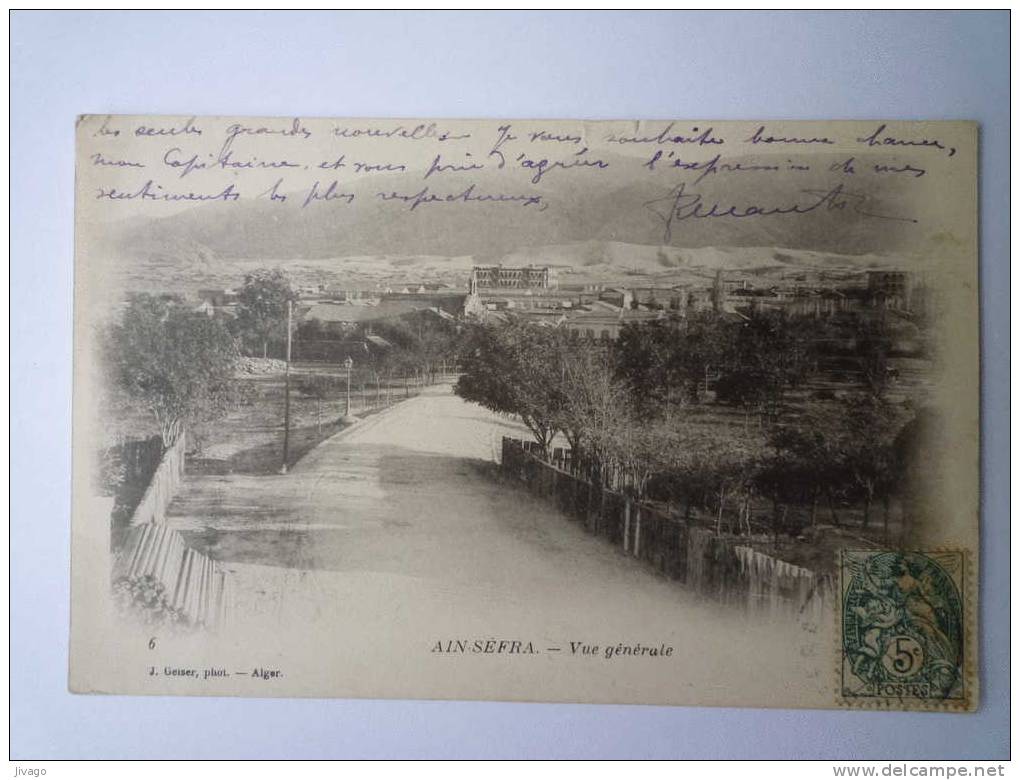 les seules grandes nouvelles. Je vous souhaite bonne chance,
mon Capitaine, et vous prie d'agréer l'expression de mes
sentiments les plus respectueux,
6
AIN-SÉFRA. — Vue générale
J. Geiser, phot. — Alger.
5c
POSTES
jivago
www.delcampe.net